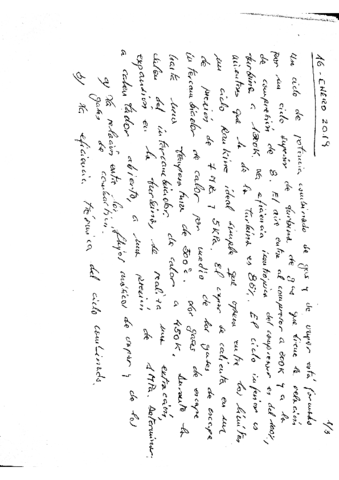 16 - ENERO 2019
1/3
Un ciclo de potencia combinado de gas y de vapor está formado
por un ciclo superior de turbina de gas que tiene la relación
de compresión de 8. El aire entra al compresor a 300K y a la
turbina a 1300K. La eficiencia isentrópica del compresor es del
mientras que la de la turbina es 86%. El ciclo inferior es
un ciclo Rankine ideal simple que opera entre los límites
de presión de 7 MPa y 5 KPa. El vapor se calienta en un
intercambiador de calor por medio de los gases de escape
hasta una temperatura de 500°. Los gases de escape
salen del intercambiador de calor a 450K. Durante la
expansión en la turbina, se realiza una extracción,
a calentador abierto, a una presión de 1 MPa. Determinar:
a) La relación entre los flujos másicos de vapor y de los
gases de combustión.
b) La eficiencia térmica del ciclo combinado.